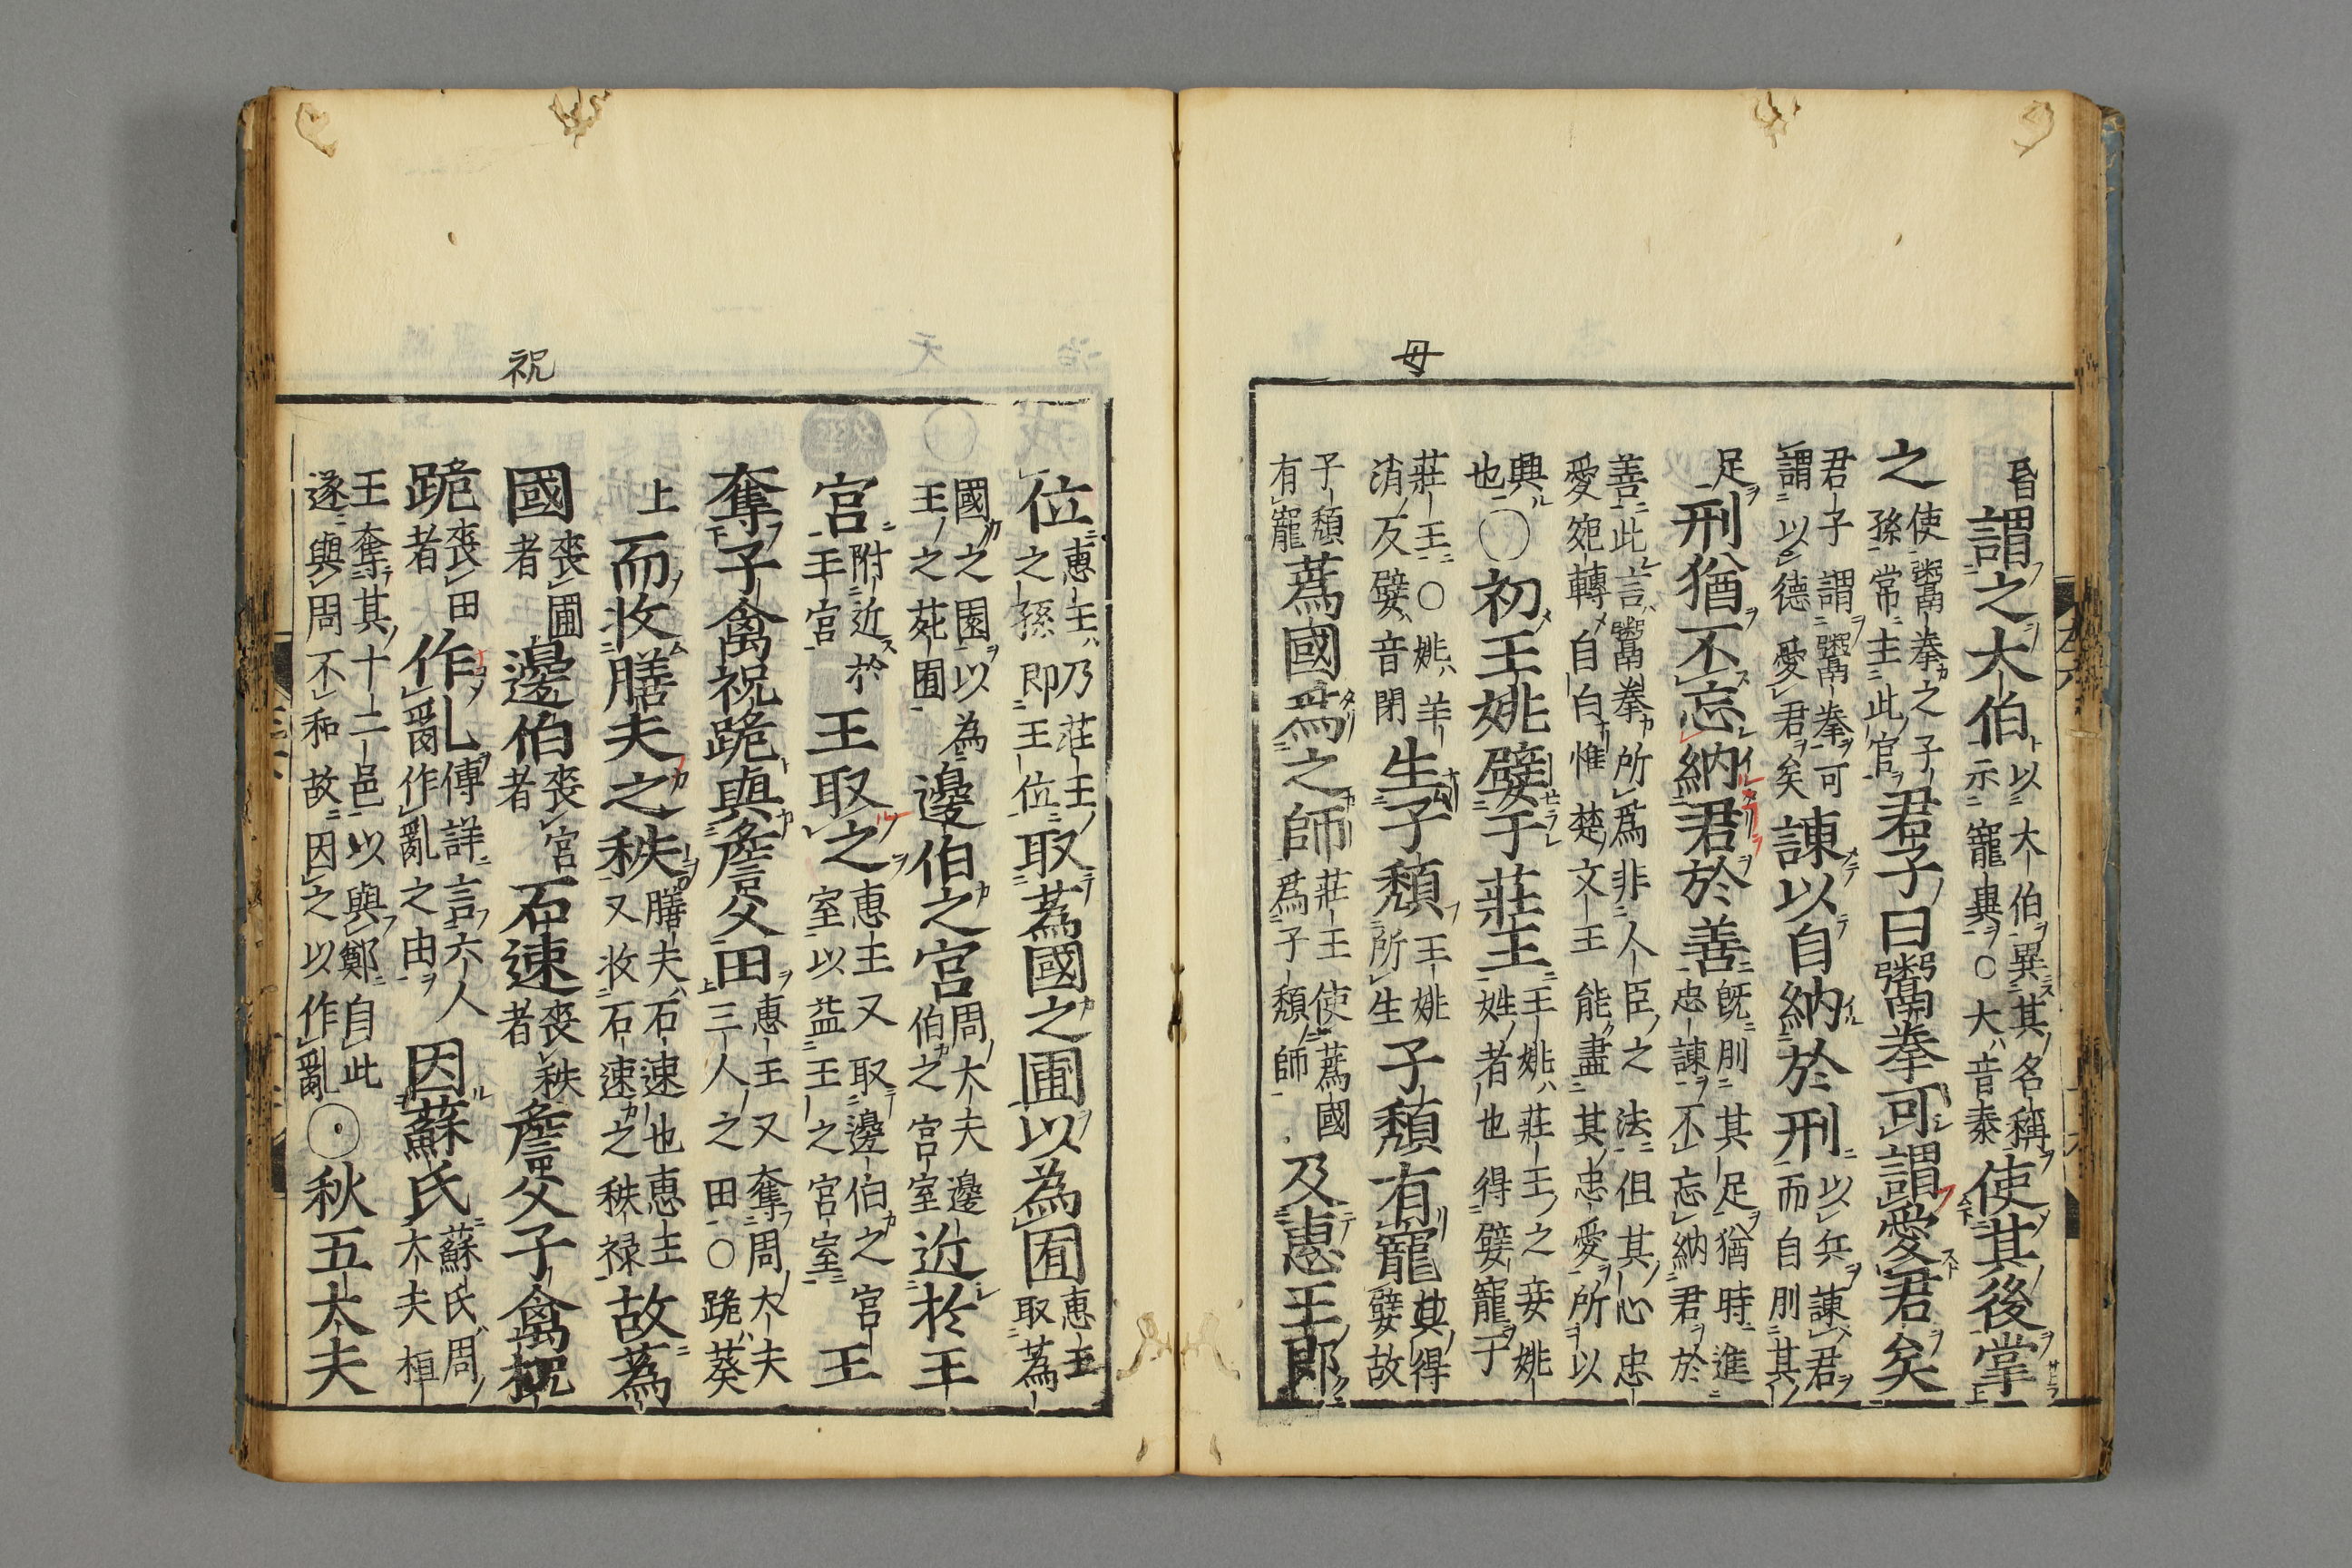 母
昏謂之大伯以大伯異其名稱示寵異○大音泰使其後掌
之使鬻拳之子孫常主此官君子曰鬻拳可謂愛君矣
君子謂鬻拳可謂以德愛君矣諫以自納於刑以兵諫君而自刖其
足刑猶不忘納君於善旣刖其足猶時進忠諫不忘納君於
善此言鬻拳所爲非人臣之法但其心忠愛宛轉自白惟楚文王能盡其忠愛所以
興也○初王姚嬖于莊王王姚莊王之妾姚姓者也得嬖寵于
莊王○姚羊消反嬖音閉生子頹王姚所生子頹有寵其得嬖故
子頹有寵蒍國爲之師莊王使蒍國爲子頹師及惠王卽
祝
位惠王乃莊王之孫即王位取蒍國之圃以為囿惠王取蒍
國之園以為王之苑囿邊伯之宮周大夫邊伯之宮室近於王
宮附近於王宮王取之惠王又取邊伯之宮室以益王之宮室王
奪子禽祝跪與詹父田惠王又奪周大夫三人之田○跪葵
上而收膳夫之秩膳夫石速也惠王又收石速之秩祿故蒍
國喪圃者邊伯喪宮者石速喪秩者詹父子禽祝
跪喪田者作乱傳詳言六人作亂之由因蘇氏蘇氏周大夫桓
王奪其十二邑以與鄭自此遂與周不和故因之以作亂○秋五大夫